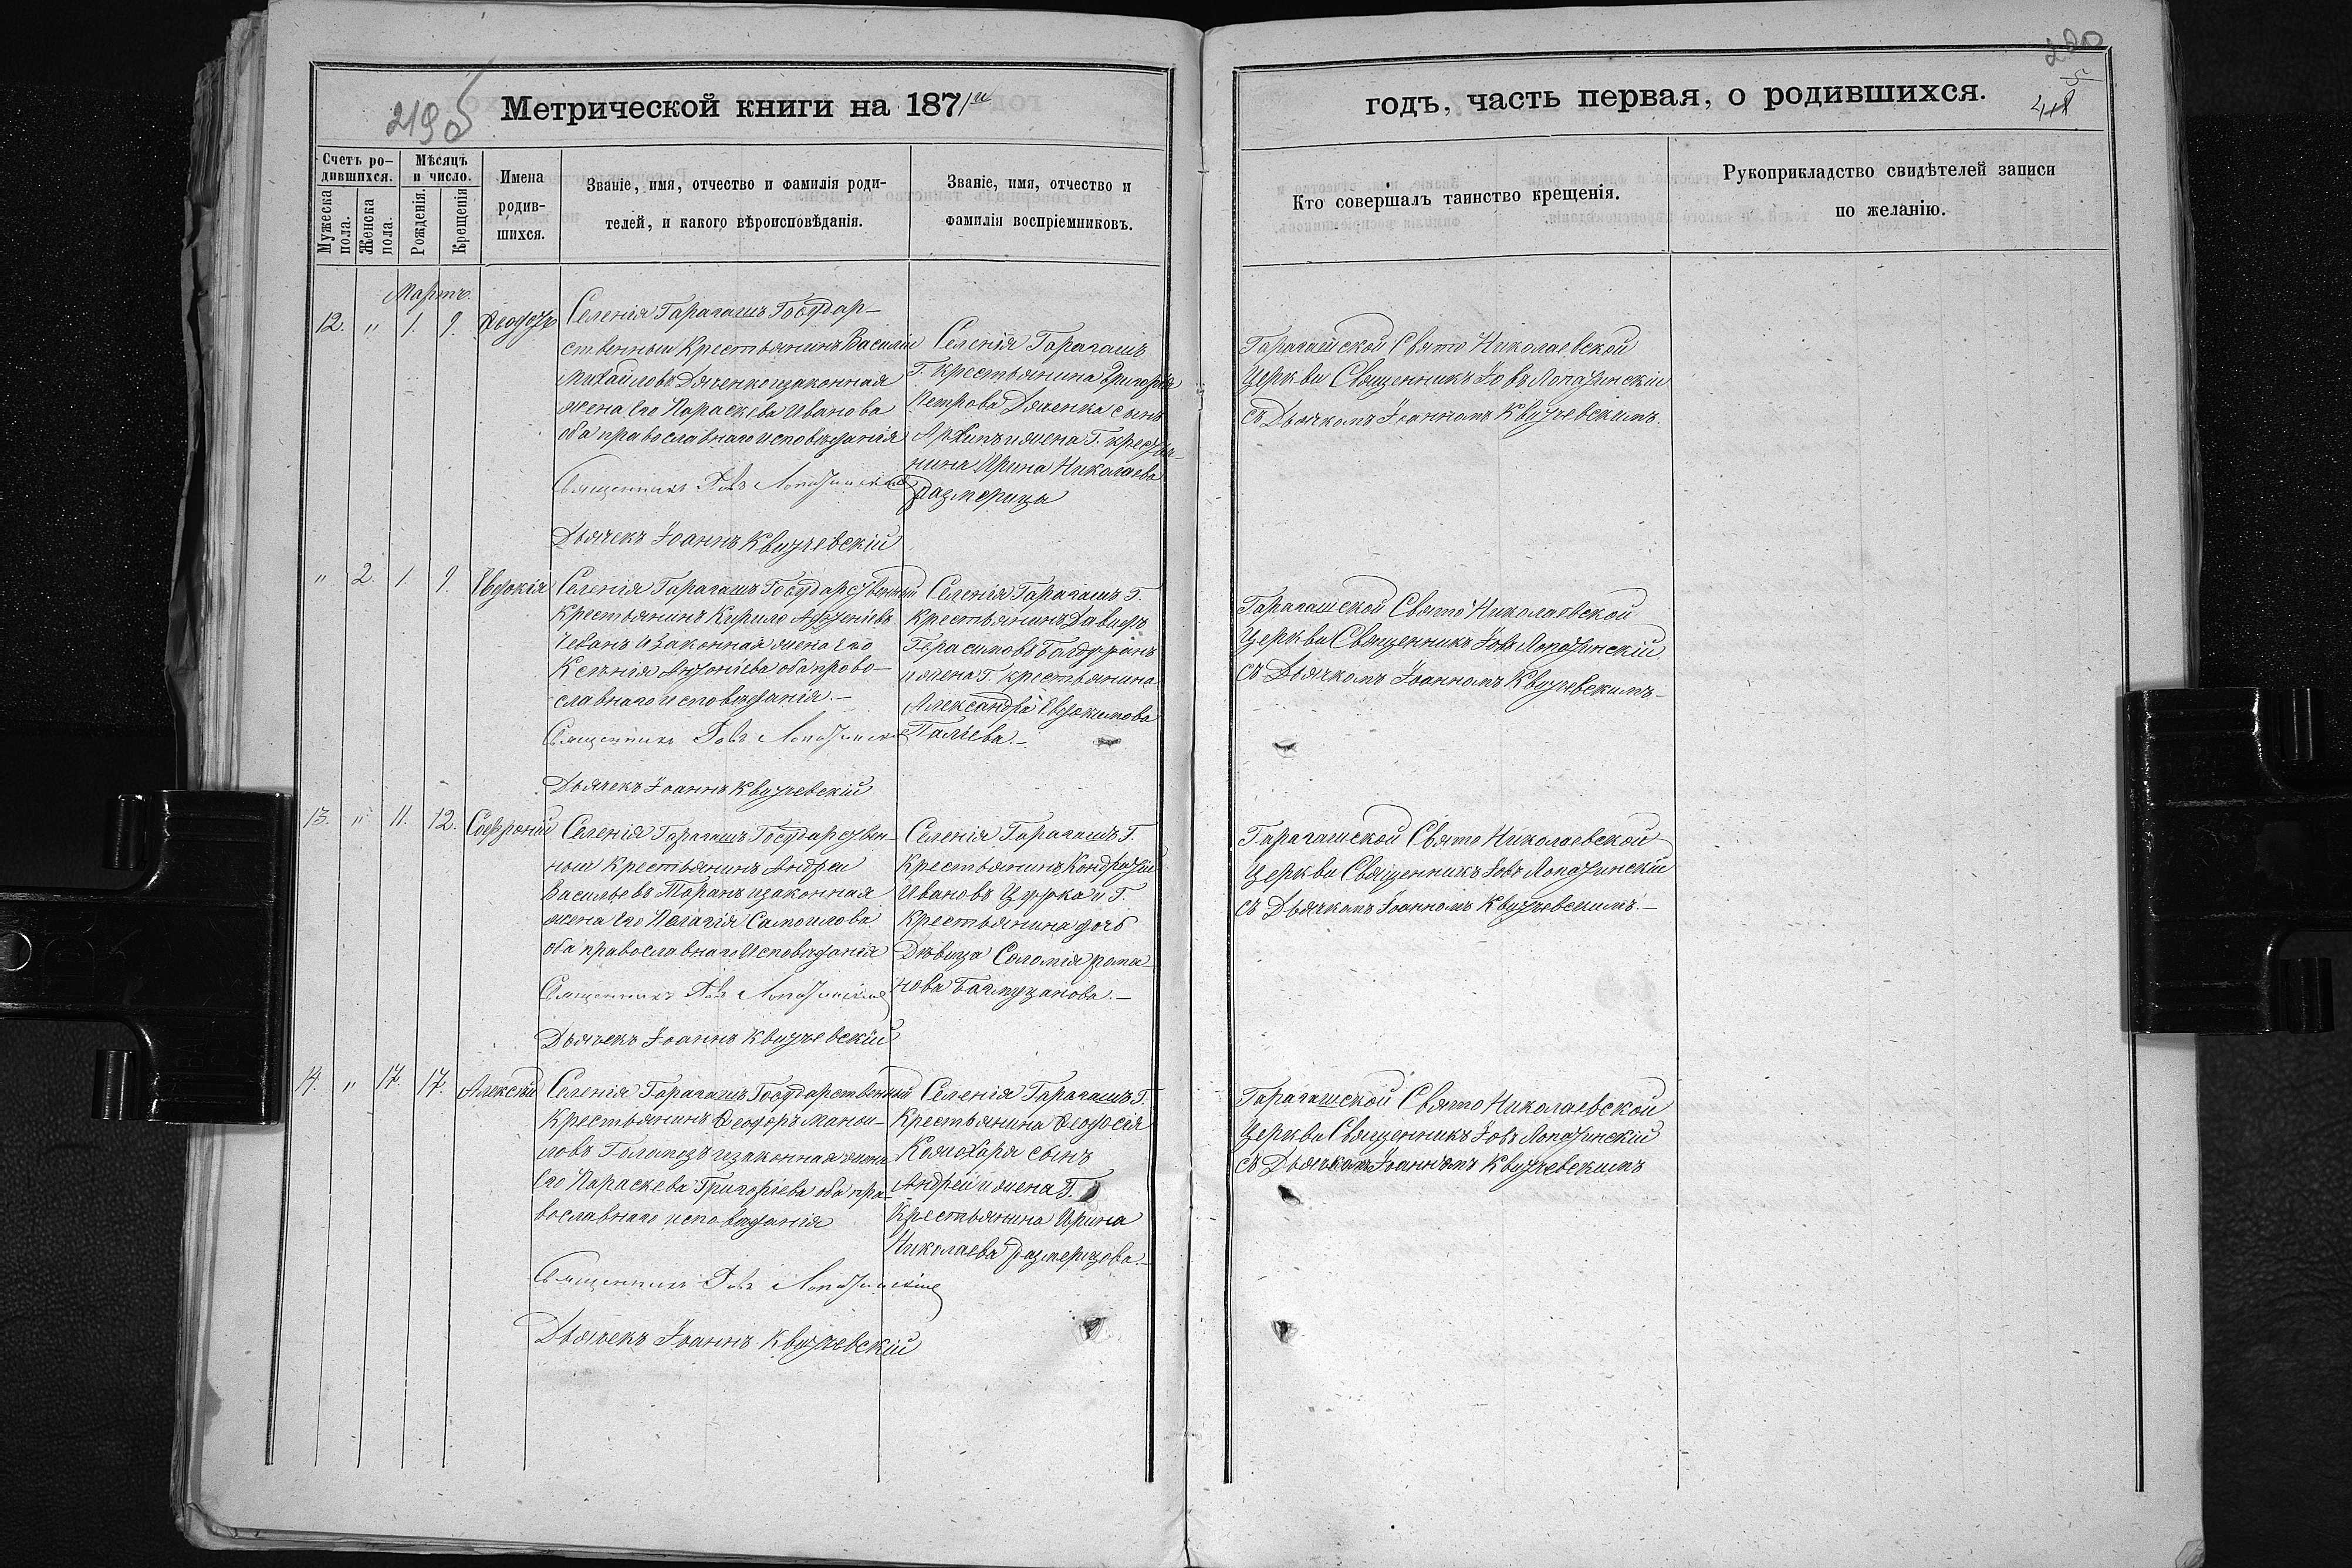 219 об
Метрической книги на 1871й
Счетъ ро-
дившихся.
Мужеска пола.
Женска пола.
Мѣсяцъ
и число.
Рожденія.
Крещенія
Имена
родив-
шихся.
Званіе, имя, отчество и фамилія роди-
телей, и какого вѣроисповѣданія.
Званіе, имя, отчество и
фамилія воспріемниковъ.
Мартъ.
12. " 1. 9. Ѳеодотъ
Селенія Гарагашъ Государ-
ственный Крестьянинъ Василій
Михайловъ Дяченко изаконная
жена Его Параскева Иванова
оба православнаго исповѣданія
Священникъ Іовъ Лопатинскій
Дьячекъ Іоаннъ Квитчевскій
Селенія Гарагашъ
Г. Крестьянина Григорія
Петрова Дяченка сынъ
Архипъ и жена Г. крестья-
нина Ирина Николаева
Размерица
" 2. 1. 9. Евдокія
Селенія Гарагашъ Государственный
Крестьянинъ Кирило
Чебанъ изаконная жена Его
Ксенія Антоніева оба право-
славнаго исповѣданія.-
Священникъ Іовъ Лопатинскій
Дьячекъ Іоаннъ Квитчевскій
Селенія Гарагашъ Г.
Крестьянинъ Давидъ
Герасимовъ
и жена Г. крестьянина
Александра Евдокимова
Паліева.-
13. " 11. 12. Софроній
Селенія Гарагашъ Государствен-
ный Крестьянинъ Андрей
Васильевъ Таранъ изаконная
жена Его Пелагія Самоилова
оба православнаго Исповѣданія
Священникъ Іовъ Лопатинскій
Дьячекъ Іоаннъ Квитчевскій
Селенія Гарагашъ Г.
Крестьянинъ Кондратій
Ивановъ Цуркан и Г.
Крестьянина дочь
Дѣвица Соломія Рома-
нова .-
14. " 17. 17. Алексѣй
Селенія Гарагашъ Государственный
Крестьянинъ Ѳеодоръ Манои-
ловъ Голамозъ изаконная жена
Его Параскева Григоріева оба пра-
вославнаго исповѣданія
Священникъ Іовъ Лопатинскій
Дьячекъ Іоаннъ Квитчевскій
Селенія Гарагашъ Г.
Крестьянина Ѳеодосія
сынъ
Андрей и жена Г.
Крестьянина Ирина
Николаева Размерицова.-
годъ, часть первая, о родившихся.
220
Кто совершалъ таинство крещенія.
Рукоприкладство свидѣтелей записи
по желанію.
Гарагашской Свято Николаевской
Церкви Священникъ Іовъ Лопатинскій
съ Дьячкомъ Іоанномъ Квитчевскимъ.
Гарагашской Свято Николаевской
Церкви Священникъ Іовъ Лопатинскій
съ Дьячкомъ Іоанномъ Квитчевскимъ-
Гарагашской Свято Николаевской
Церкви Священникъ Іовъ Лопатинскій
съ Дьячкомъ Іоанномъ Квитчевскимъ.-
Гарагашской Свято Николаевской
Церкви Священникъ Іовъ Лопатинскій
съ Дьячкомъ Іоанномъ Квитчевскимъ